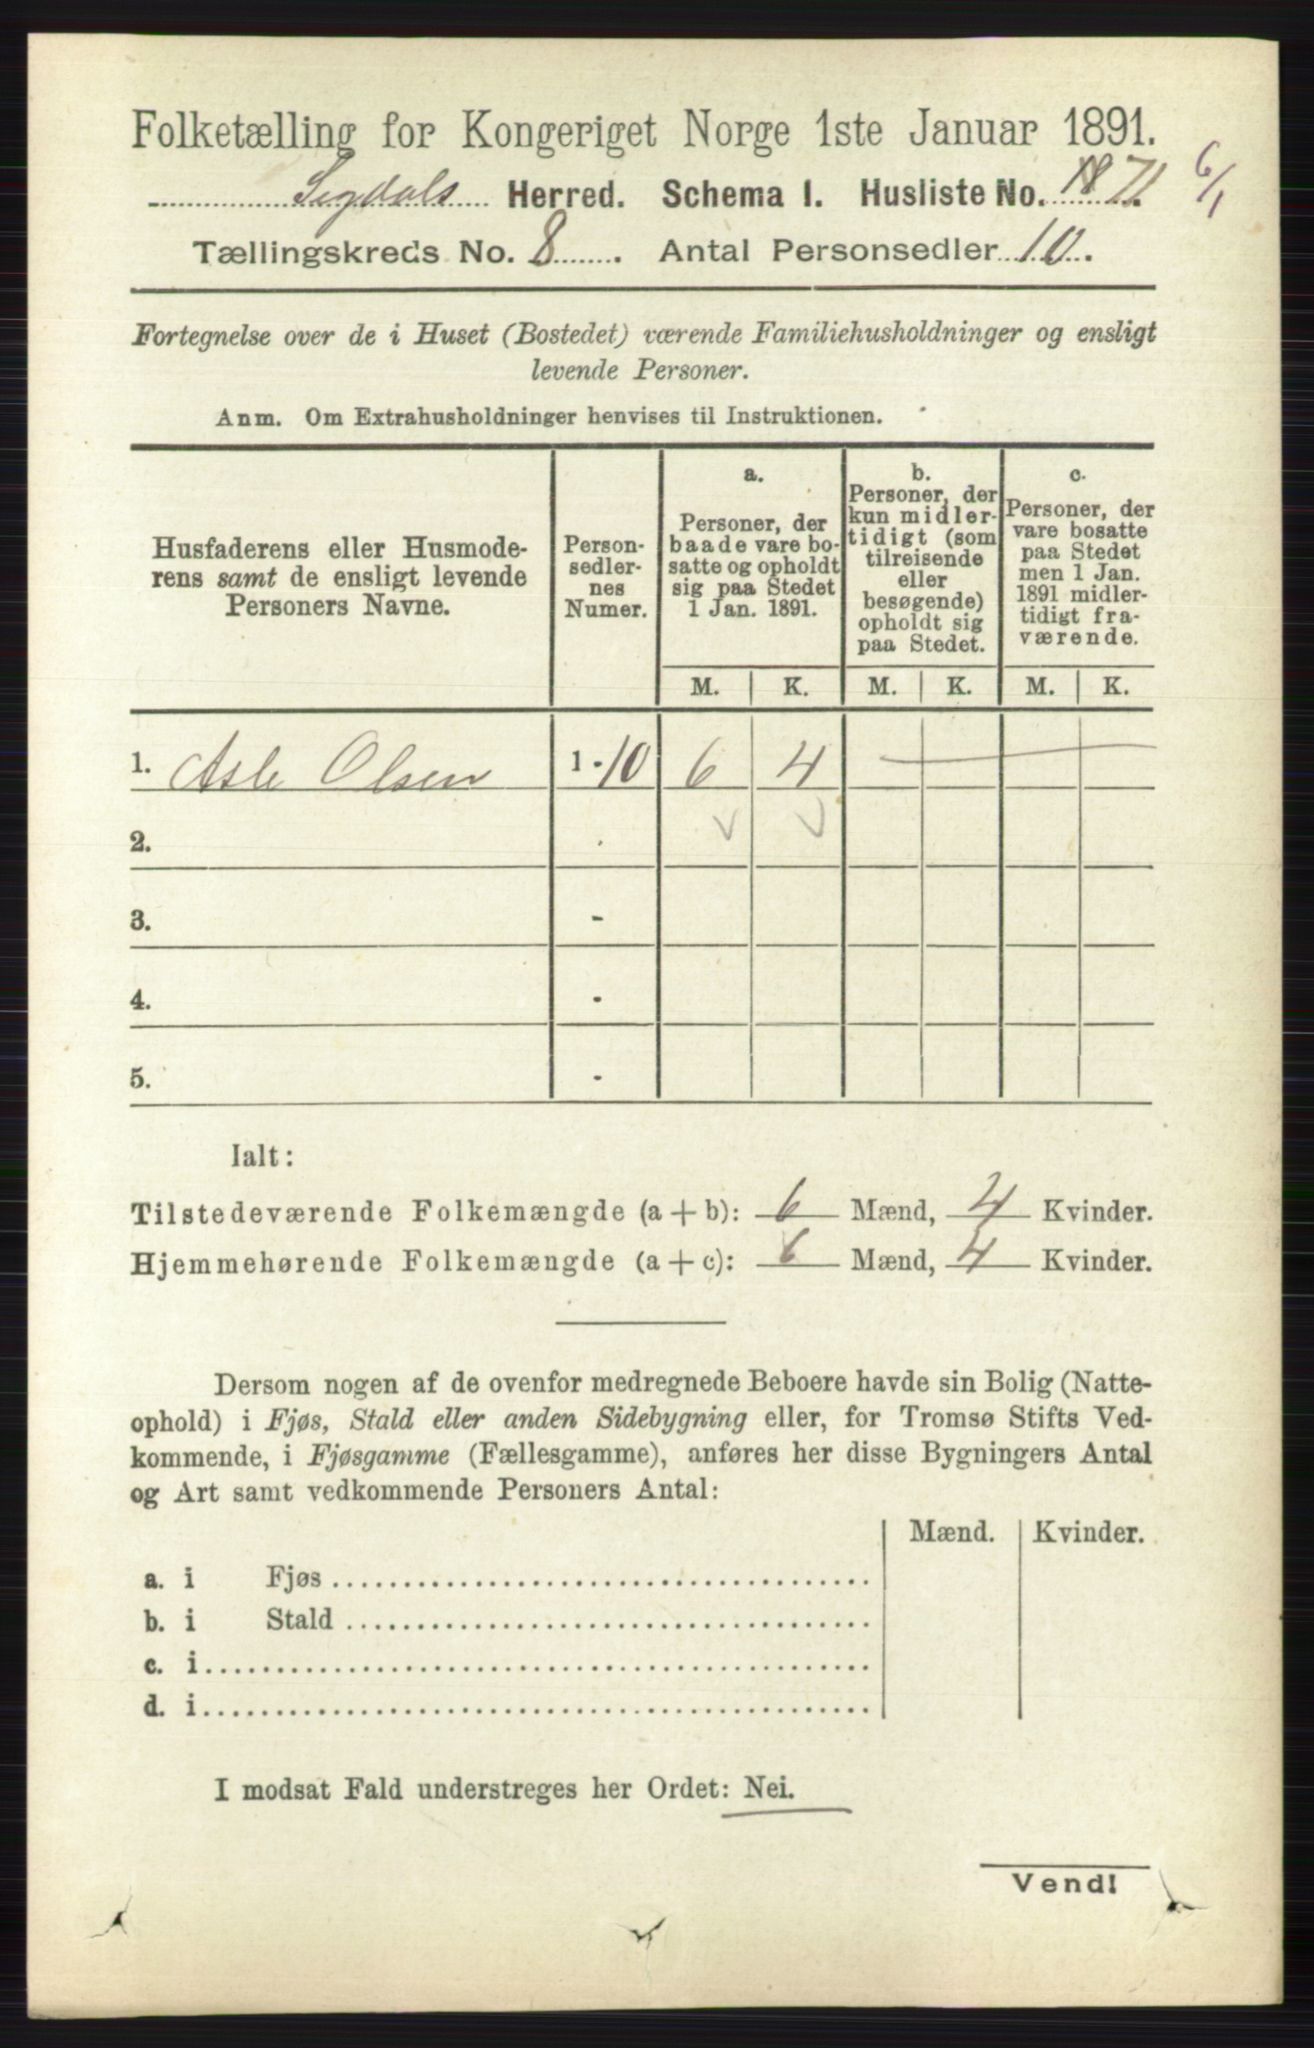 Folketælling for Kongeriget Norge 1ste Januar 1891.
Sigdals Herred. Schema I. Husliste No. 71
6/1
Tællingskreds No. 8. Antal Personsedler 10.
Fortegnelse over de i Huset (Bostedet) værende Familiehusholdninger og ensligt
levende Personer.
Anm. Om Extrahusholdninger henvises til Instruktionen.
Husfaderens eller Husmode-
rens samt de ensligt levende
Personers Navne.
Person-
sedler-
nes
Numer.
a.
Personer, der
baade vare bo-
satte og opholdt
sig paa Stedet
1 Jan. 1891.
b.
Personer, der
kun midler-
tidigt (som
tilreisende
eller
besøgende)
opholdt sig
paa Stedet.
c.
Personer, der
vare bosatte
paa Stedet
men 1 Jan.
1891 midler-
tidigt fra-
værende.
M. K. M. K. M. K.
1. Asle Olsen 1 - 10 6 4
2.
3. -
4. -
5. -
Ialt:
Tilstedeværende Folkemængde (a + b): 6 Mænd, 4 Kvinder.
Hjemmehørende Folkemængde (a + c): 6 Mænd, 4 Kvinder.
Dersom nogen af de ovenfor medregnede Beboere havde sin Bolig (Natte-
ophold) i Fjøs, Stald eller anden Sidebygning eller, for Tromsø Stifts Ved-
kommende, i Fjøsgamme (Fællesgamme), anføres her disse Bygningers Antal
og Art samt vedkommende Personers Antal:
Mænd. Kvinder.
a. i Fjøs
b. i Stald
c. i
d. i
I modsat Fald understreges her Ordet: Nei.
Vend!